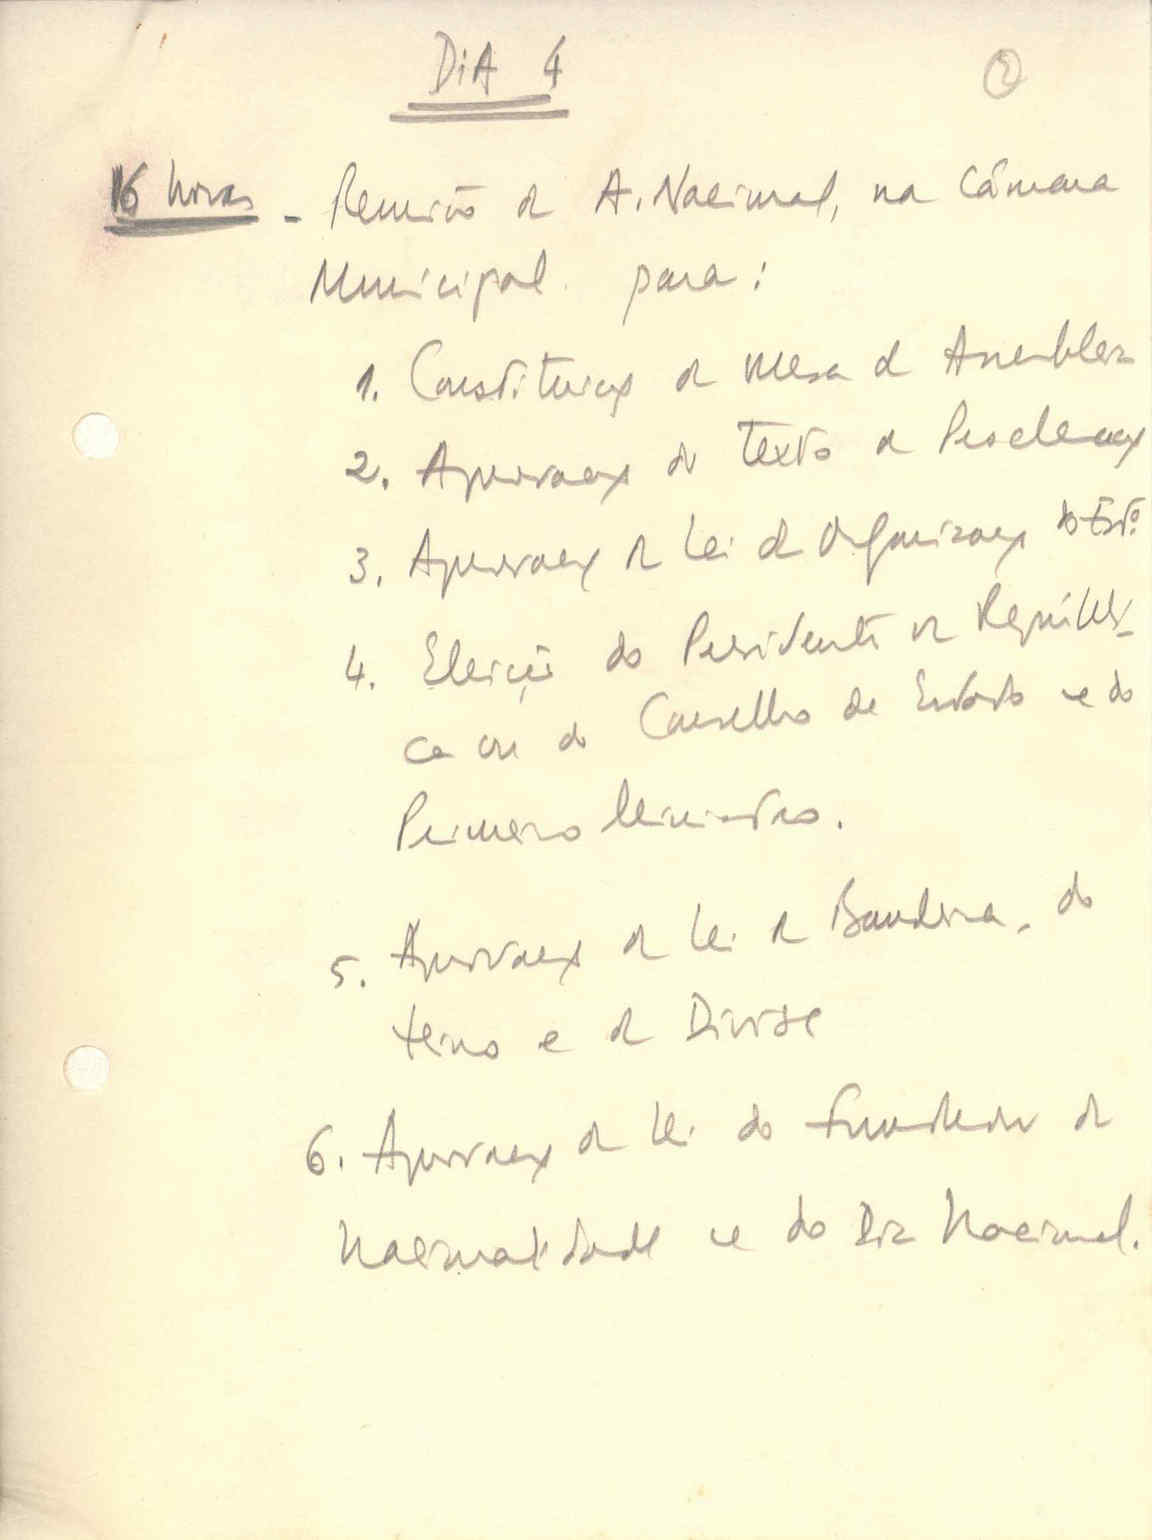 DiA 4
2
16 horas - Reunião da A. Nacional, na Câmara
Municipal para:
1. Constituição da Mesa da Assembleia
2. Aprovação do Texto da Proclamação
3. Aprovação da Lei da Organização do Estº
4. Eleição do Presidente da Repúbli-
ca ou do Conselho de Estado e do
Primeiro Ministro.
5. Aprovação da Lei da Bandeira, do
Hino e da Divisa
6. Aprovação da Lei do Fundador da
Nacionalidade e do Dia Nacional.